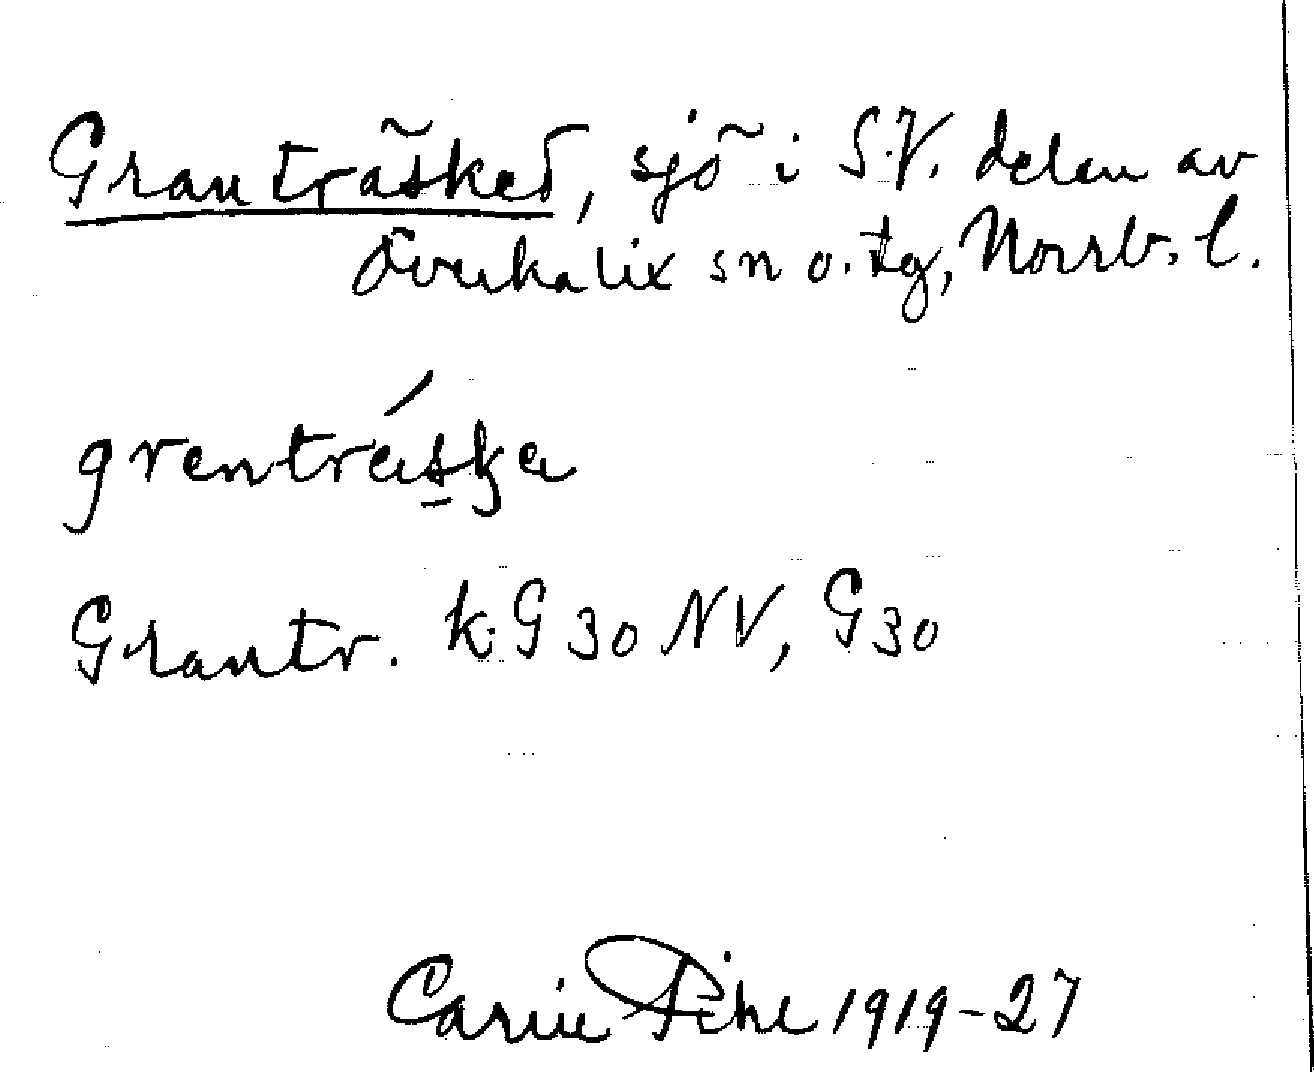 Granträsket, sjö i S.V. delen av
Överkalix sn o. tg, Norrb. l.
grenträska
Grantr. k. G 30 NV, G 30
Carin Pihl 1919-27